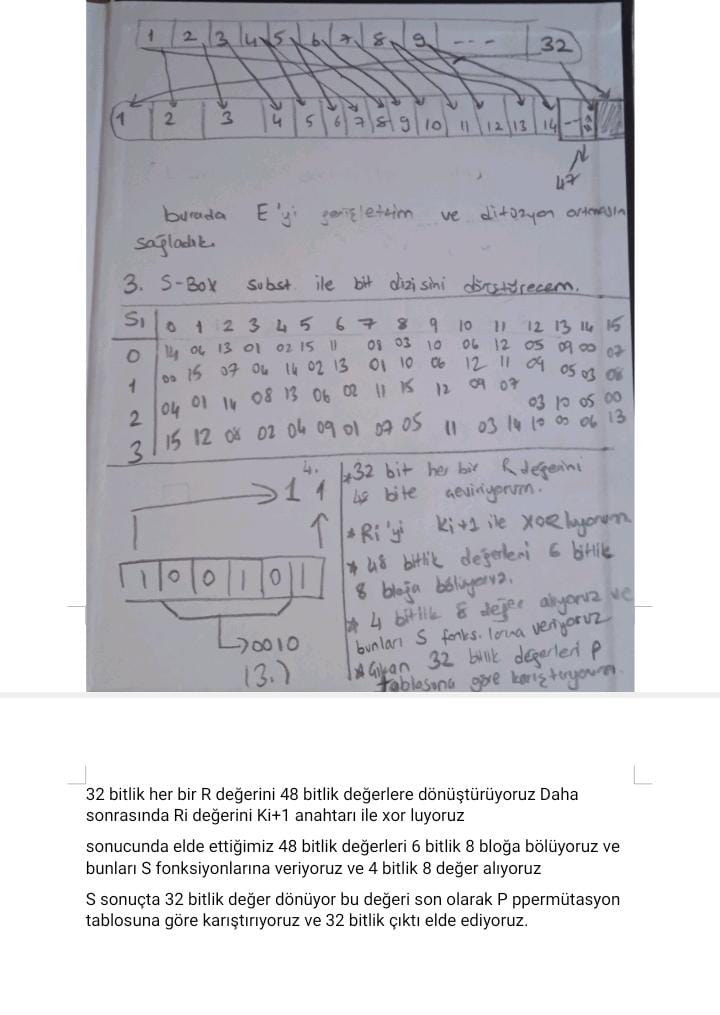 1 2 3 4 5 6 7 8 9 --- 32
1 2 3 4 5 6 7 8 9 10 11 12 13 14 --
47
burada E'yi genişlettim ve difüzyon artmasın
sağladık.
3. S-Box subst. ile bit dizisini dönştürecem.
S1 0 1 2 3 4 5 6 7 8 9 10 11 12 13 14 15
0 14 04 13 01 02 15 11 08 03 10 06 12 05 09 00 07
1 00 15 07 04 14 02 13 01 10 06 12 11 09 05 03 08
2 04 01 14 08 13 06 02 11 15 12 09 07 03 10 05 00
3 15 12 08 02 04 09 01 07 05 11 03 14 10 00 06 13
4.
11
1 0 0 1 0 1
0010
(3.)
*32 bit her bir R değerini
48 bite çeviriyorum.
*Ri'yi Ki+1 ile XOR luyorum
* 48 bitlik değerleri 6 bitlik
8 bloğa bölüyoruz.
* 4 bitlik 8 değer alıyoruz ve
bunları S fonks. larına veriyoruz
*Çıkan 32 bitlik değerleri P
tablosuna göre karıştırıyorum.
32 bitlik her bir R değerini 48 bitlik değerlere dönüştürüyoruz Daha
sonrasında Ri değerini Ki+1 anahtarı ile xor luyoruz
sonucunda elde ettiğimiz 48 bitlik değerleri 6 bitlik 8 bloğa bölüyoruz ve
bunları S fonksiyonlarına veriyoruz ve 4 bitlik 8 değer alıyoruz
S sonuçta 32 bitlik değer dönüyor bu değeri son olarak P ppermütasyon
tablosuna göre karıştırıyoruz ve 32 bitlik çıktı elde ediyoruz.